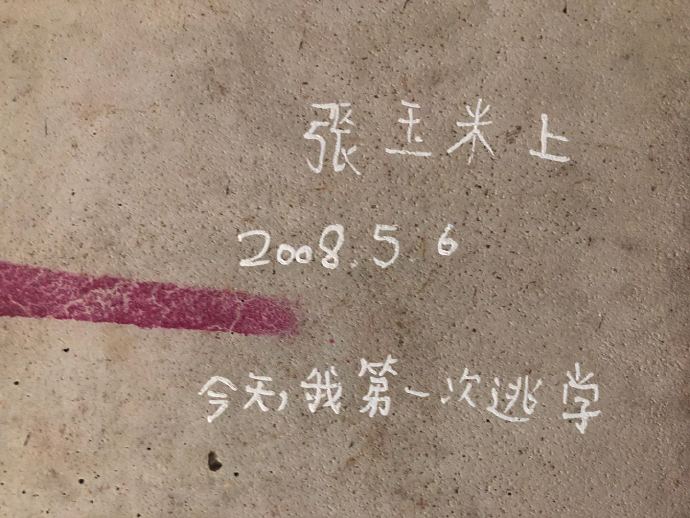 張玉米上
2008.5.6
今天,我第一次逃学